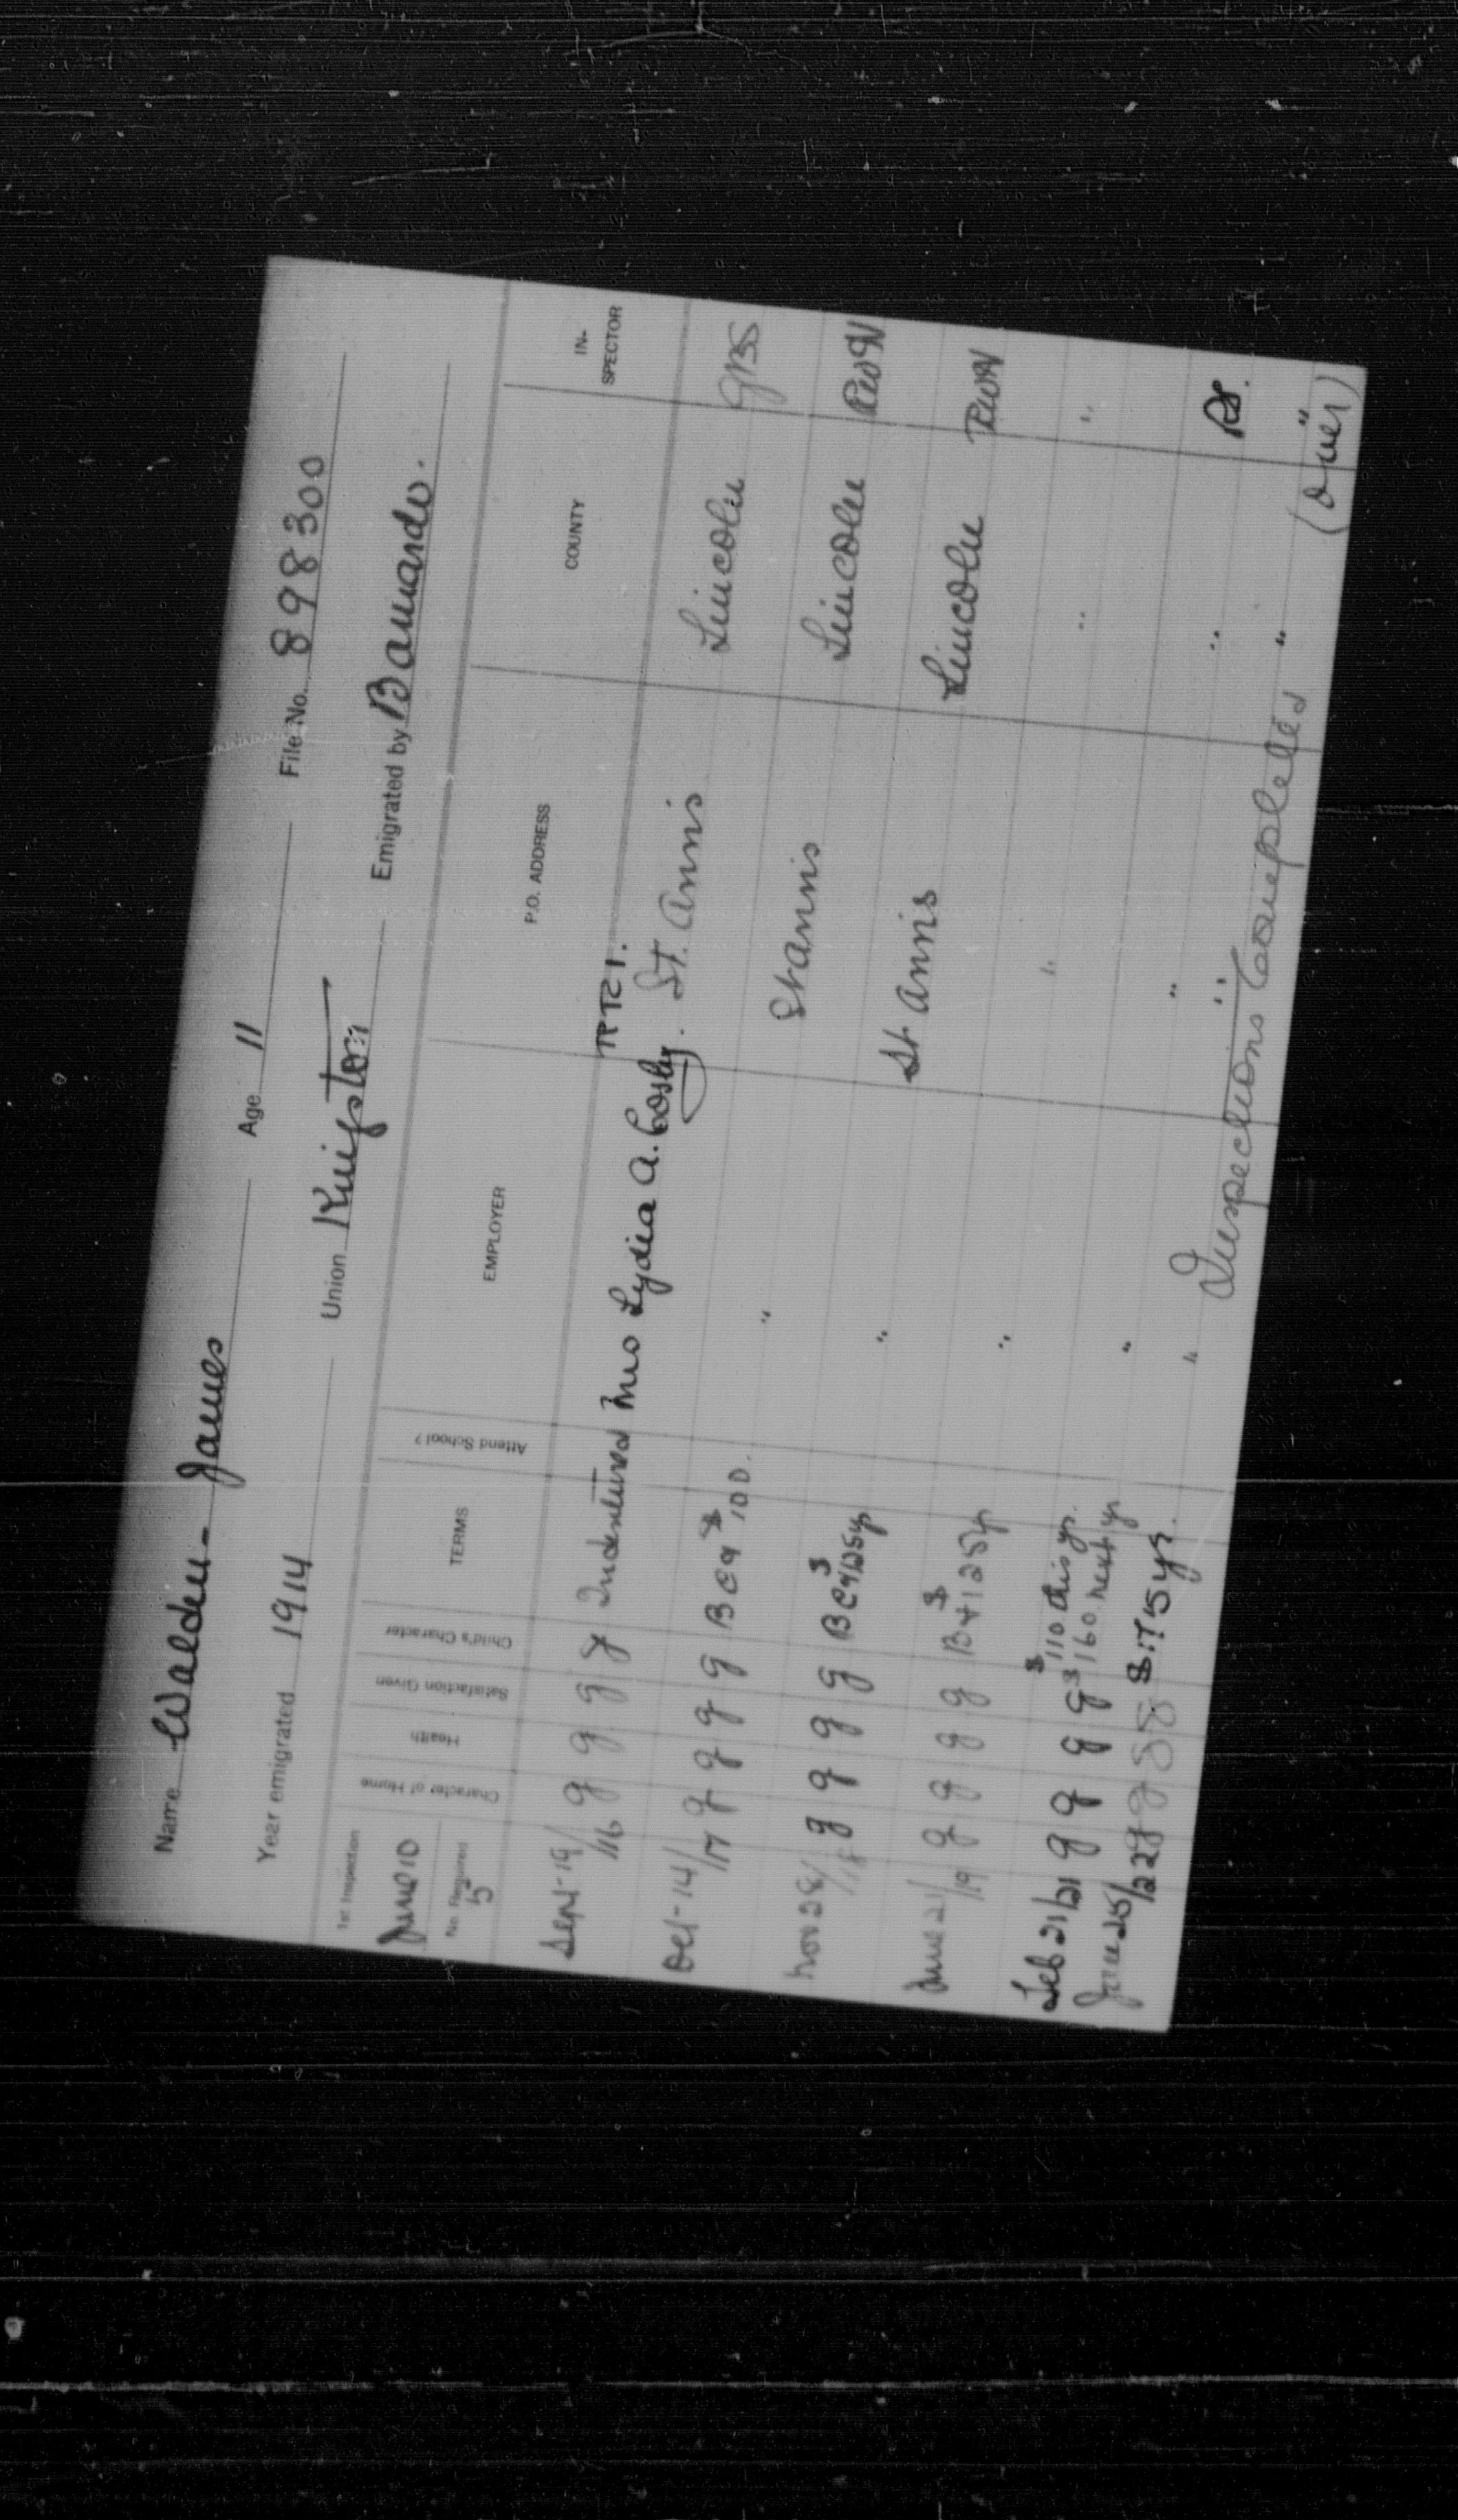 Name Walden - James Age 11 File No. 898300
Year emigrated 1914 Union Kingston Emigrated by Barnardo.
1st Inspection
June 10
No. Required
15
Character of Home
Health
Satisfaction Given
Child's Character
TERMS
Attend School?
EMPLOYER
P.O. ADDRESS
COUNTY
IN-
SPECTOR
Sept-19/16 g g g g Indentured Mrs Lydia A. Cosby. RR1. St. Anns Lincoln GBS
Oct-14/17 g g g g B C & $100. " St anns Lincoln RWN
Nov 28/18 g g g g B C & $125 yr " St Anns Lincoln RWN
June 21/19 g g g g B & $125 yr " " " "
Feb 21/21 g g g g $110 this yr. $160 next yr " " " RS.
June 25/22 g g g g $175 yr. " " " "
Inspections Completed
(over)